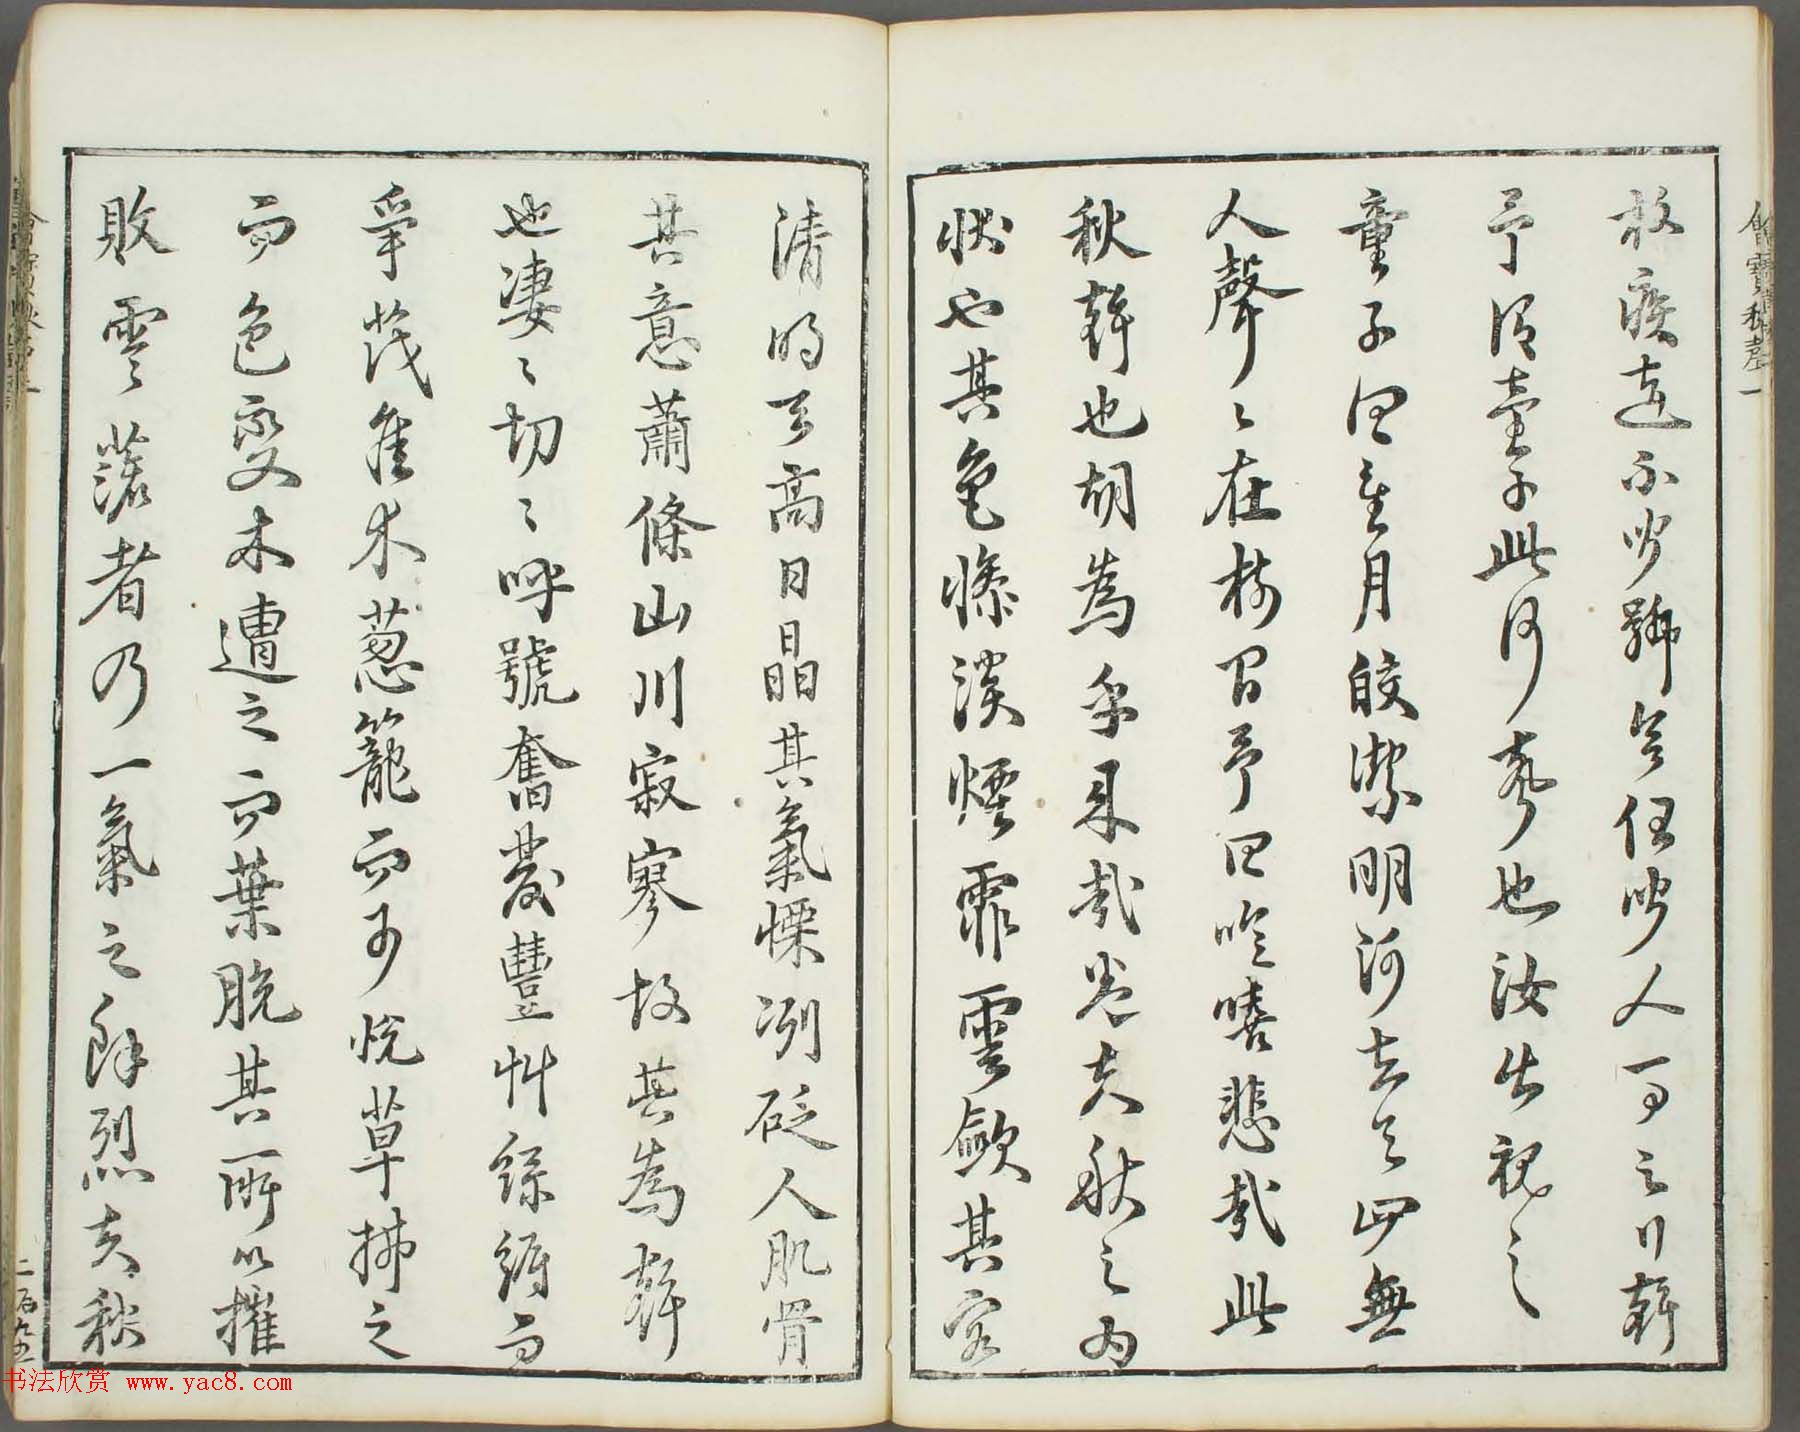 枚疾走不聞號令但聞人馬之行聲
予謂童子此何聲也汝出視之
童子曰星月皎潔明河在天四無
人聲〻在樹間予曰噫嘻悲哉此
秋聲也胡為乎來哉蓋夫秋之為
狀也其色慘淡煙霏雲斂其容
清明天高日晶其氣慄冽砭人肌骨
其意蕭條山川寂寥故其為聲
也淒〻切〻呼號奮發豐草綠縟而
爭茂佳木蔥蘢而可悅草拂之
而色變木遭之而葉脫其所以摧
敗零落者乃一氣之餘烈夫秋
秋聲一
二百九十二
书法欣赏 www.yac8.com